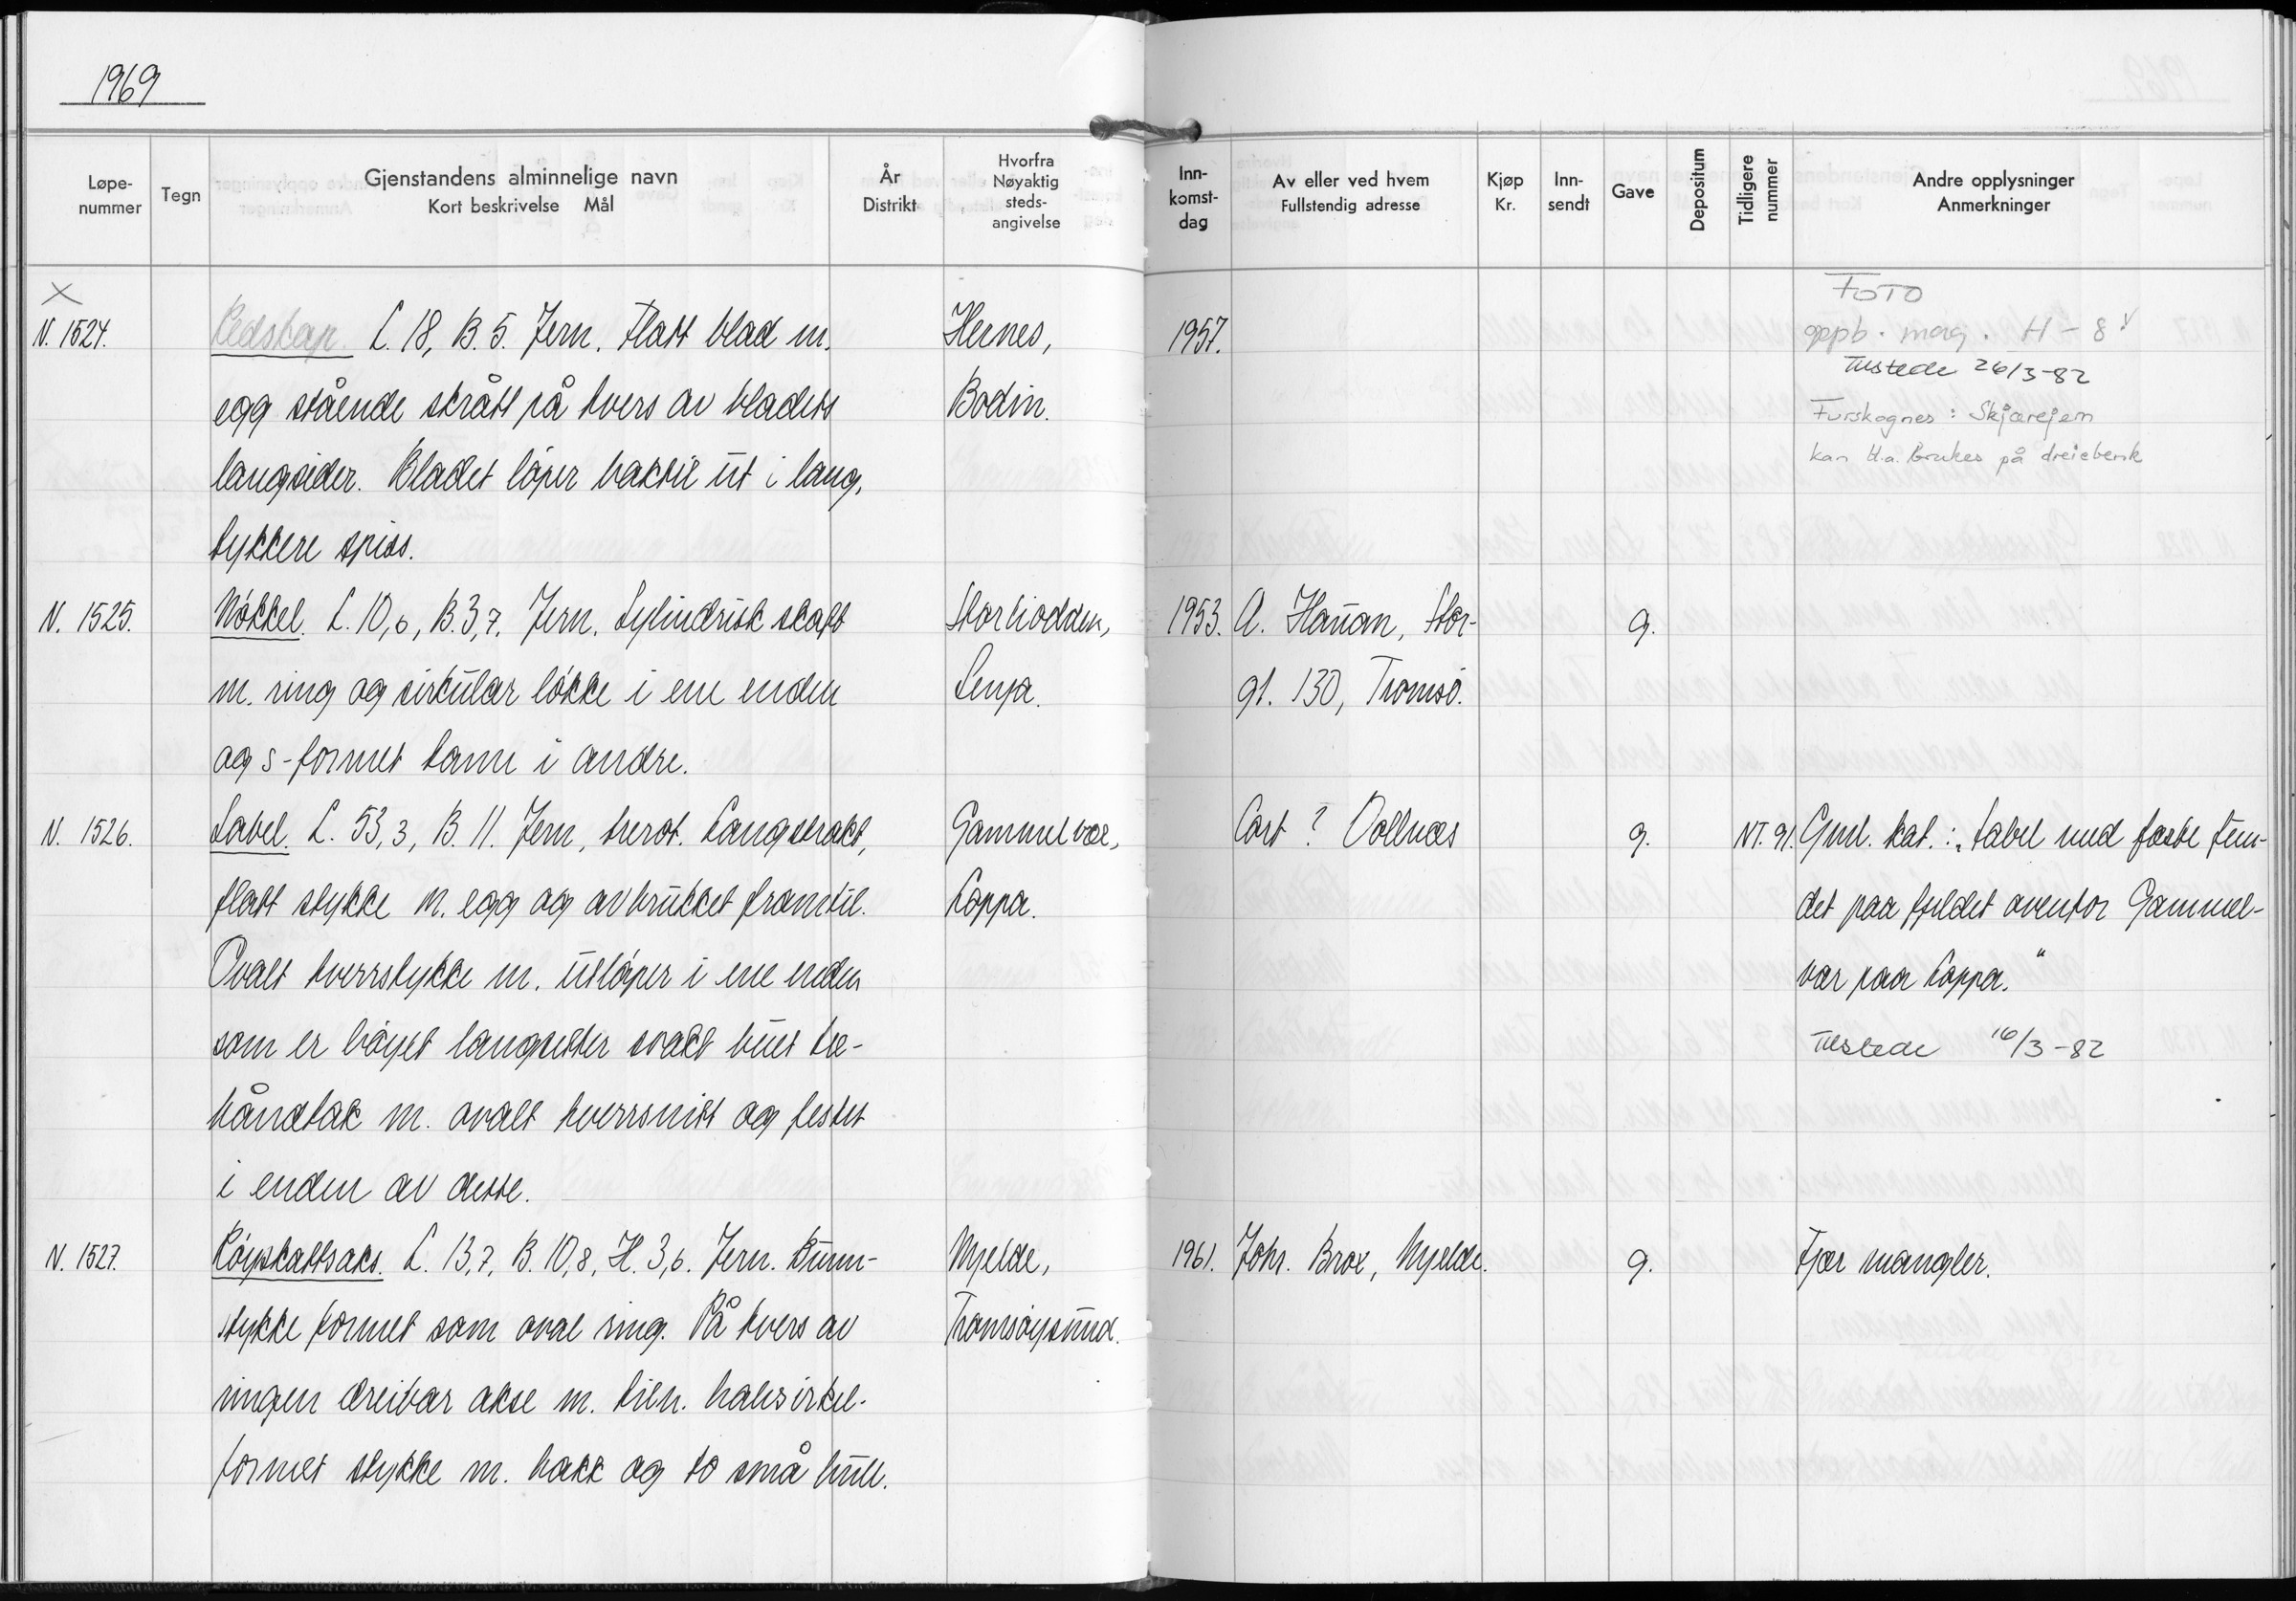 1969
Løpe-nummer
Tegn
Gjenstandens alminnelige navn
Kort beskrivelse Mål
År
Distrikt
Hvorfra
Nøyaktig
steds-
angivelse
Inn-
komst-
dag
Av eller ved hvem
Fullstendig adresse
Kjøp
Kr.
Inn-
sendt
Gave
Depositum
Tidligere
nummer
Andre opplysninger
Anmerkninger
X
N. 1524.
Redskap. L. 18, B. 5. Jern. Flatt blad m.
egg stående skrått på tvers av bladets
langsider. Bladet løper baktil ut i lang,
tykkere spiss.
Hernes,
Bodin.
1957.
FOTO
oppb. mag. H - 8 V
Tilstede 26/3-82
Furskognes: Skjærejern
kan bl.a. brukes på dreiebenk
N. 1525.
Nøkkel. L. 10,6, B. 3,7. Jern. Sylindrisk skaft
m. ring og sirkulær løkke i ene enden
og s-formet tann i andre.
Storliodden,
Senja.
1953.
A. Hauan, Stor-
gt. 130, Tromsø.
g.
N. 1526.
Sabel. L. 53,3, B. 11. Jern, trerot. Langstrakt,
flatt stykke m. egg og avbrukket framtil.
Ovalt tverrstykke m. utløper i ene enden
som er bøyet langsetter svakt buet tre-
håndtak m. ovalt tverrsnitt og festet
i enden av dette.
Gammelvær,
Loppa.
Cart ? Vollnes
g.
NT. 91.
Gml. kat.: „Sabel med fæste fun-
det paa fjeldet ovenfor Gammel-
vær paa Loppa."
Tilstede 16/3-82
N. 1527.
Røyskattsaks. L. 13,7, B. 10,8, H. 3,6. Jern. Bunn-
stykke formet som oval ring. På tvers av
ringen dreibar akse m. tiln. halvsirkel-
formet stykke m. hakk og to små hull.
Mjelde,
Tromsøysund.
1961.
Johr. Brox, Mjelde.
g.
Fjær mangler.